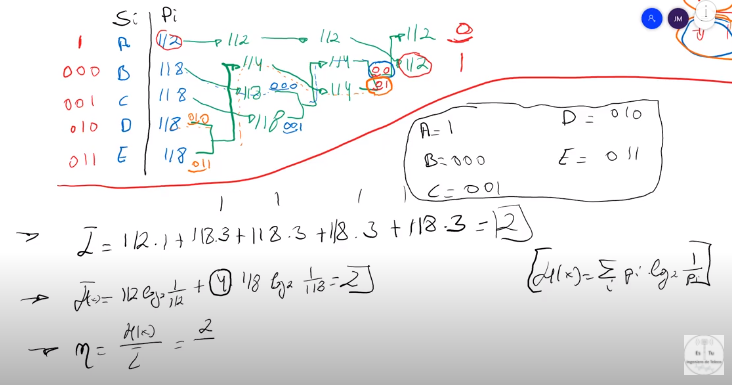 Si Pi
1 A 1/2 → 1/2 → 1/2 → 1/2 0
000 B 1/8 1/4 1/4 00 1/2 1
001 C 1/8 1/8 000 1/4 01
010 D 1/8 010 1/8 001
011 E 1/8 011
A=1 D= 010
B=000 E= 011
C=001
L̄ = 1/2.1 + 1/8.3 + 1/8.3 + 1/8.3 + 1/8.3 = 2
H(x) = 1/2 log2 1/1/2 + 4 1/8 log2 1/1/8 = 2
[H(x) = Σi pi log2 1/pi]
η = H(x)/L̄ = 2
JM